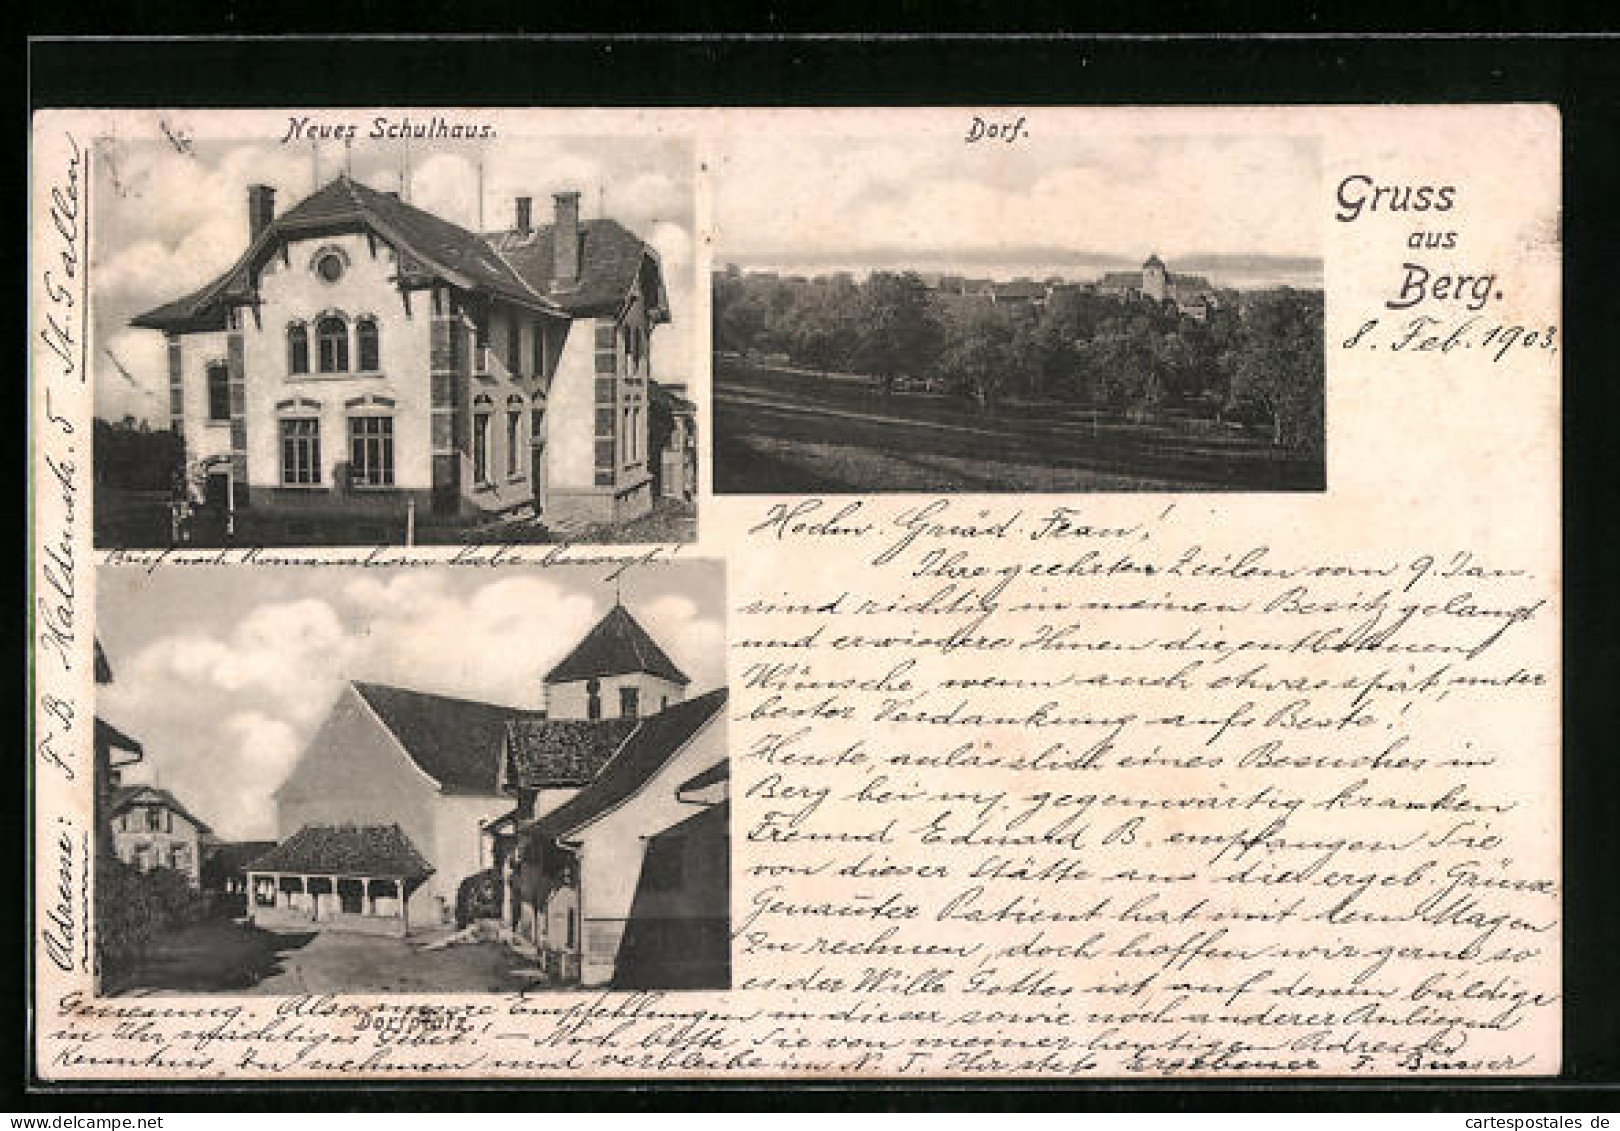 Neues Schulhaus.
Dorf.
Gruss
aus
Berg.
8. Feb. 1903.
Brief nach Romanshorn habe besorgt!
Hochw. Gnäd. Frau!
Ihre geehrten Zeilen vom 9. Jan.
sind richtig in meinen Besitz gelangt
und erwiedere Ihnen die entbotenen
Wünsche, wenn auch etwas spät, unter
bester Verdankung aufs Beste!
Heute, anlässlich eines Besuches in
Berg bei m. gegenwärtig kranken
Freund Eduard B. empfangen Sie
von dieser Stätte aus die ergeb. Grüsse,
Genannter Patient hat mit dem Magen
zu rechnen, doch hoffen wir gerne so
es der Wille Gottes ist, auf deren baldige
Genesung. Also unsere Empfehlungen in dieser sowie noch anderer Anliegen
Dorfplatz.
in Ihr mächtiges Gebet! – Noch bitte Sie von meiner heutigen Adresse
Kenntnis zu nehmen und verbleibe im N. J. Ihr stets Ergebener F. Busser
Adresse: F. B. Haldenstr. 5 St. Gallen
cartespostales de